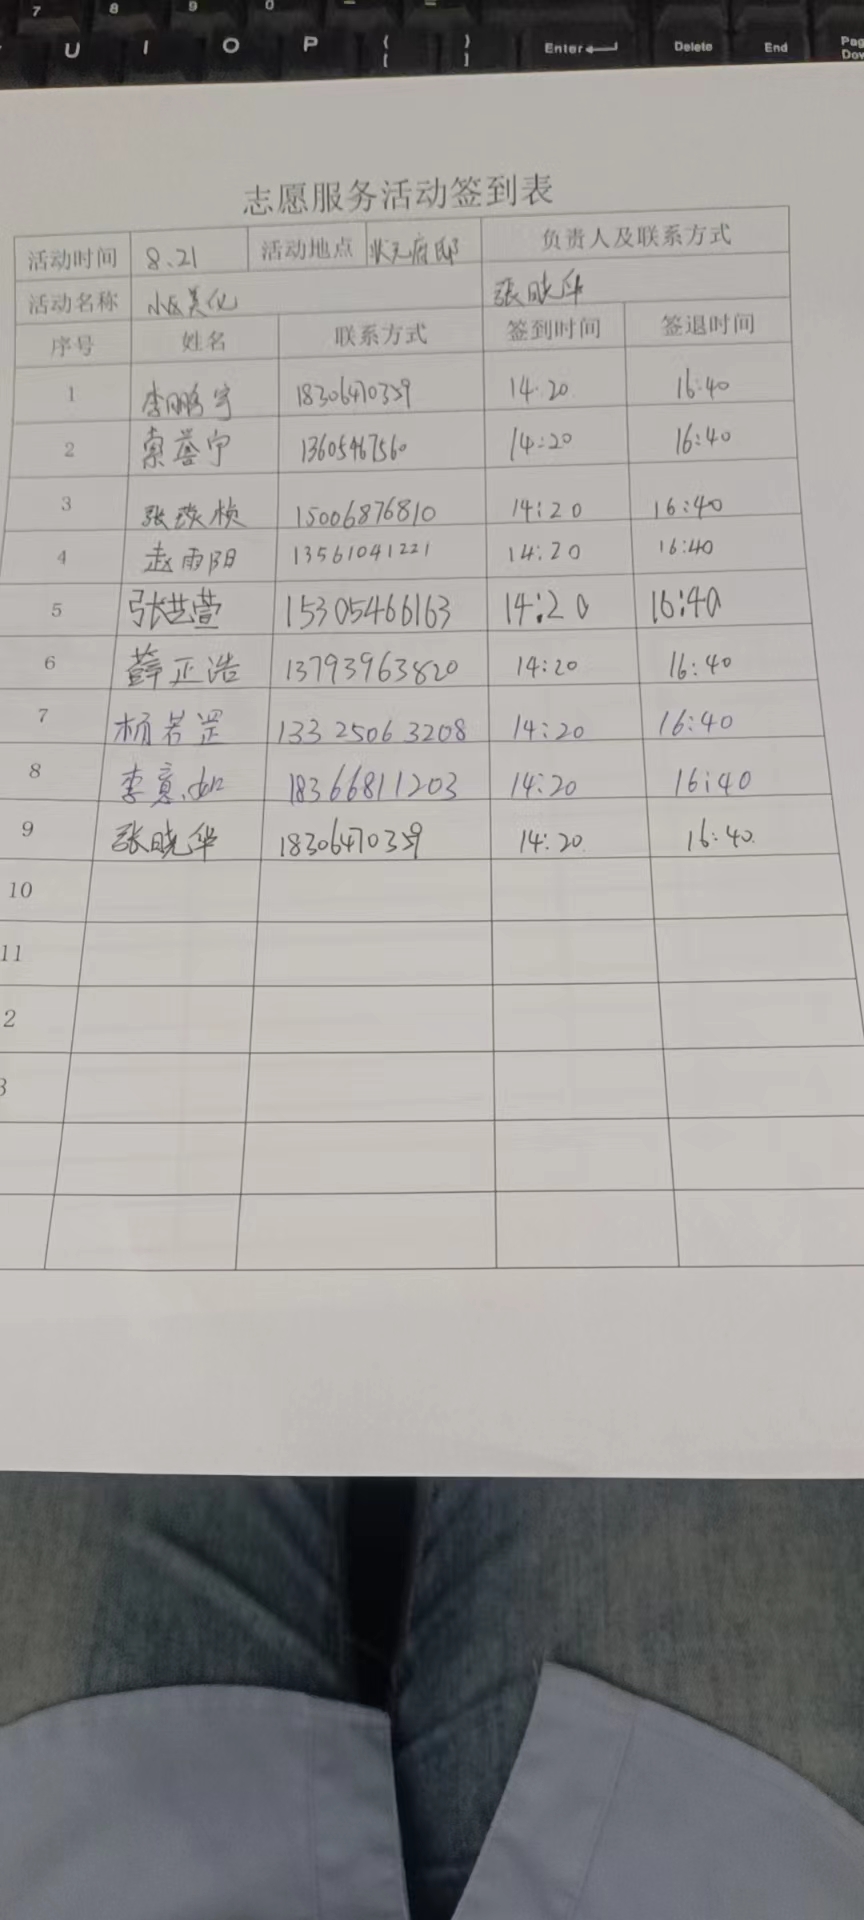 7 8 9 0
U I O P { [ } ] Enter Delete End Pag Dov
志愿服务活动签到表
活动时间 8.21 活动地点 状元府邸 负责人及联系方式
活动名称 小区美化 张晓华
序号 姓名 联系方式 签到时间 签退时间
1 李鹏宇 18306470359 14:20 16:40
2 索誉宁 13605467560 14:20 16:40
3 张 桢 15006876810 14:20 16:40
4 赵雨阳 13561041221 14:20 16:40
5 张芸萱 15305466163 14:20 16:40
6 薛正浩 13793963820 14:20 16:40
7 杨若罡 13325063208 14:20 16:40
8 李意如 18366811203 14:20 16:40
9 张晓华 18306470359 14:20 16:40
10
11
2
3